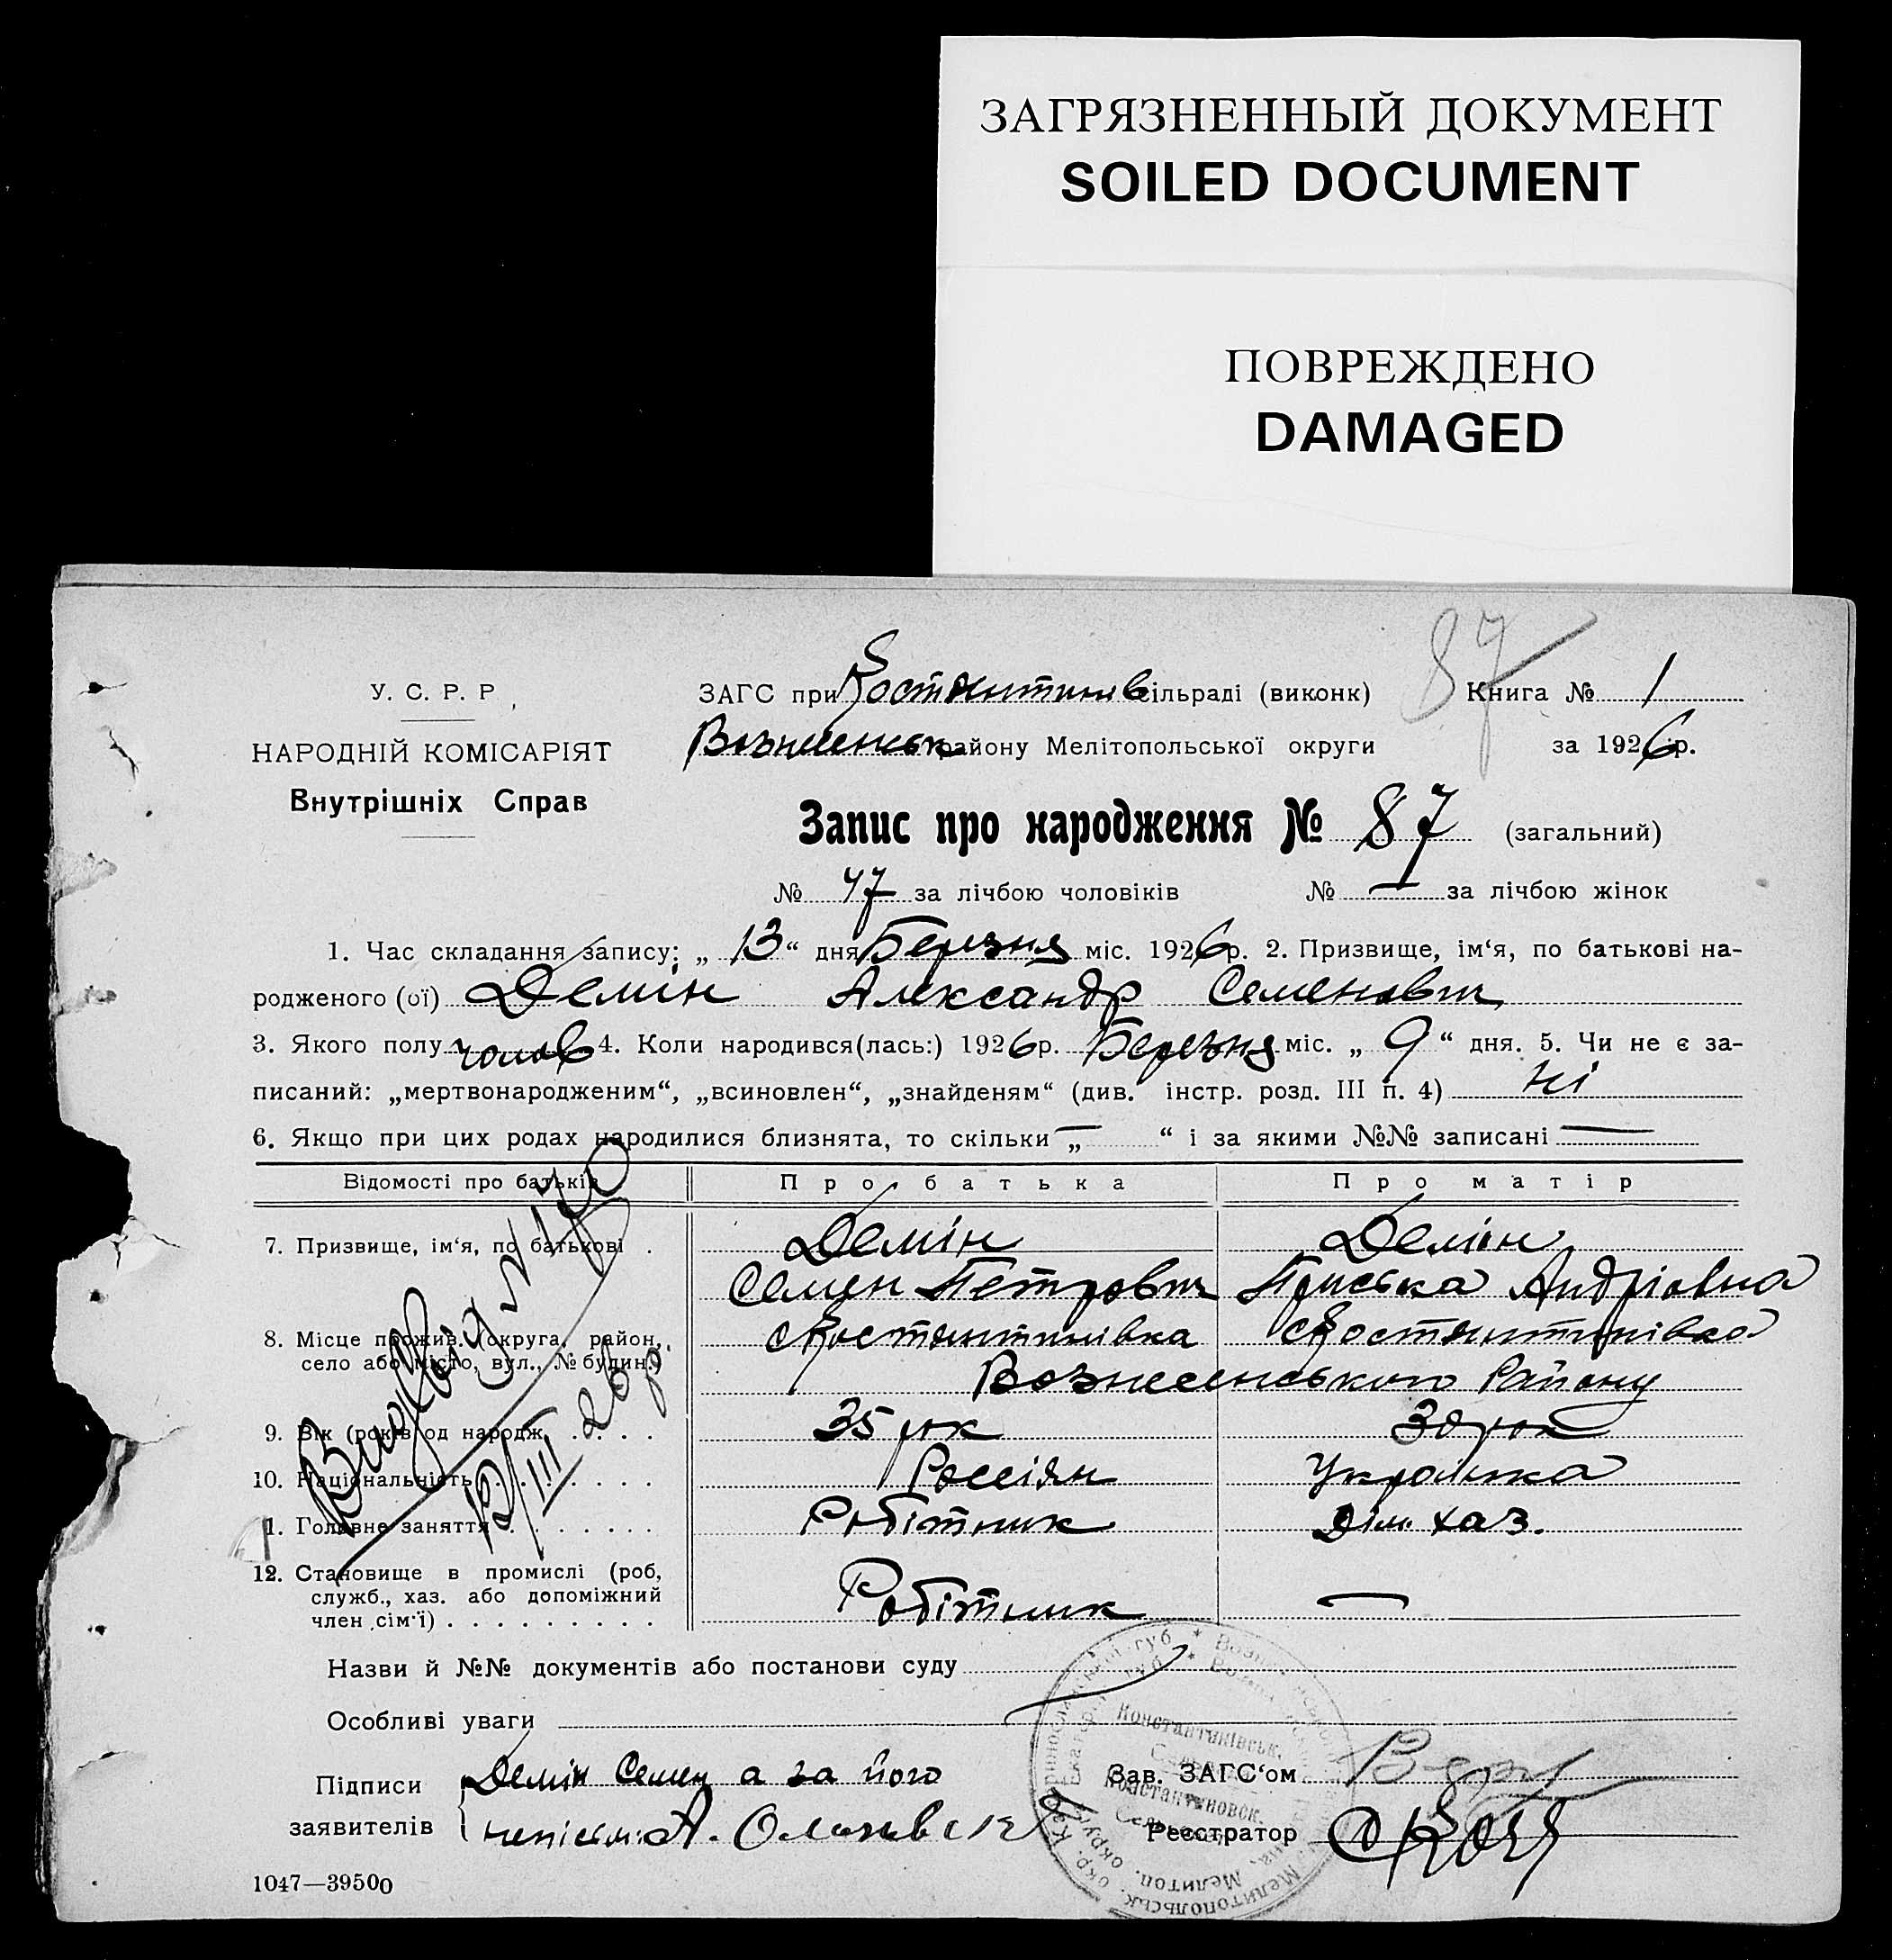 ЗАГРЯЗНЕННЫЙ ДОКУМЕНТ
SOILED DOCUMENT
ПОВРЕЖДЕНО
DAMAGED
87
У. С. Р. Р.
НАРОДНІЙ КОМІСАРІЯТ
Внутрішніх Справ
ЗАГС при Костянтинів сільраді (виконк) Книга № 1
Вознесенськ району Мелітопольської округи за 1926 р.
Запис про народження № 87 (загальний)
№ 47 за лічбою чоловіків № — за лічбою жінок
1. Час складання запису: „ 13 “ дня Березня міс. 1926 р. 2. Призвище, ім‘я, по батькові на-
родженого (ої) Демін Александр Семенович
3. Якого полу чолов 4. Коли народився(лась:) 1926 р. Березня міс. „ 9 “ дня. 5. Чи не є за-
писаний: „мертвонародженим“, „всиновлен“, „знайденям“ (див. інстр. розд. III п. 4) ні
6. Якщо при цих родах народилися близнята, то скільки „ — “ і за якими №№ записані —
Відомості про батьків Про батька Про матір
7. Призвище, ім‘я, по батькові . Демін Демін
Семен Петрович Приська Андріовна
8. Місце прожив. (округа, район, Костянтинівка Костянтинівка
село або місто, вул., № будин.) Вознесенського Району
9. Вік (років од народж. . . . . 35 рок 30 рок
10. Національність . . . . . . . Россіян Українка
11. Головне заняття . . . . . . . Робітник Дім. хаз.
12. Становище в промислі (роб,
служб., хаз. або допоміжний
член сім‘ї) . . . . . . . . . Робітник —
№ 170
13/III 26 р.
Назви й №№ документів або постанови суду
Особливі уваги
Підписи Демін Семен а за його
заявителів непісьм: А.
Зав. ЗАГС‘ом
Реєстратор
Константинівськ.
Константиновск.
1047—39500